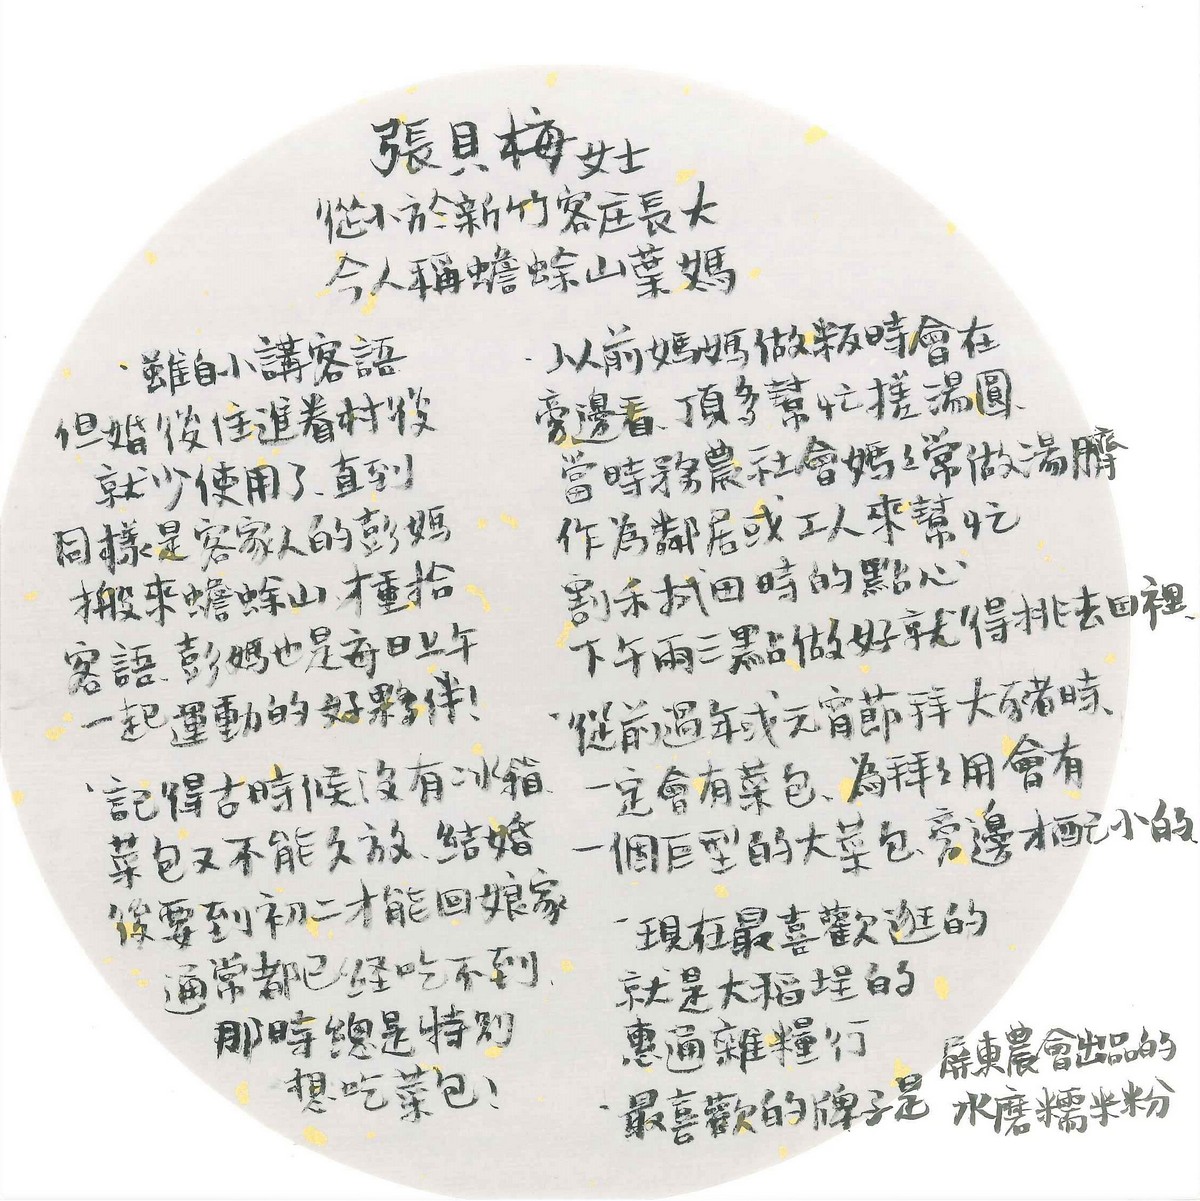 張貝梅女士
從小於新竹客庄長大
今人稱蟾蜍山葉媽
、雖自小講客語
但婚後住進眷村後
就少使用了、直到
同樣是客家人的彭媽
搬來蟾蜍山才重拾
客語、彭媽也是每日上午
一起運動的好夥伴！
、記得古時候沒有冰箱、
菜包又不能久放、結婚
後要到初二才能回娘家
通常都已經吃不到、
那時總是特別
想吃菜包！
、以前媽媽做粄時會在
旁邊看、頂多幫忙搓湯圓、
當時務農社會媽媽常做湯臍
作為鄰居或工人來幫忙
割禾拭田時的點心
下午兩三點做好就得挑去田裡、
、從前過年或元宵節拜大豬時、
一定會有菜包、為拜拜用會有
一個巨型的大菜包、旁邊才配小的
、現在最喜歡逛的
就是大稻埕的
惠通雜糧行
、最喜歡的牌子是
屏東農會出品的
水磨糯米粉